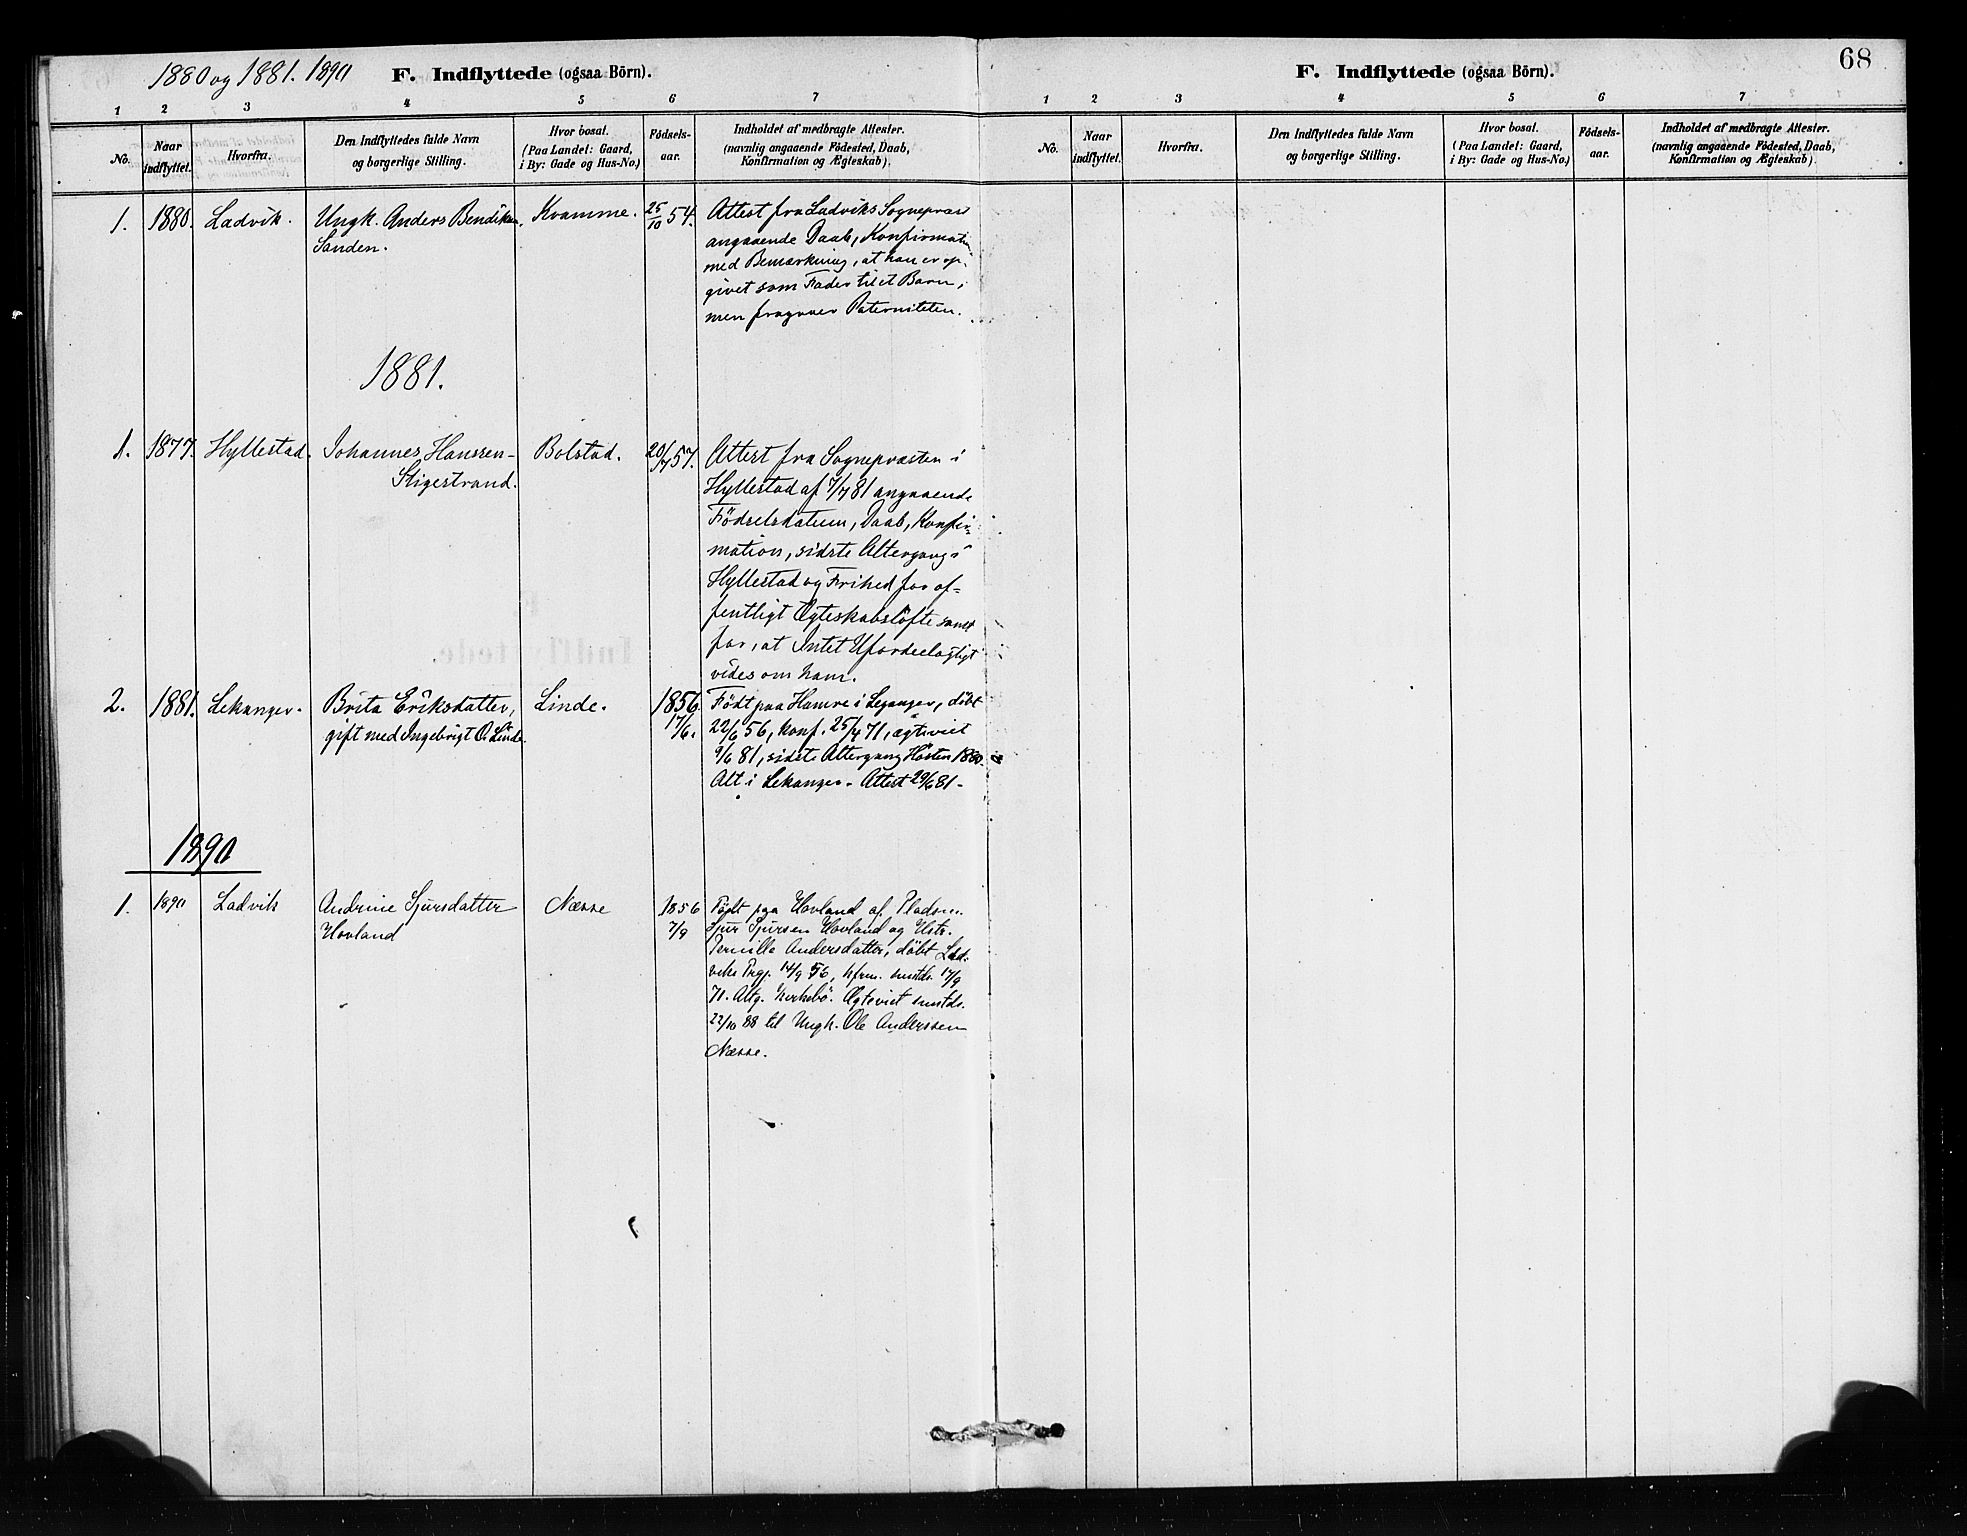 1880 og 1881. 1890
F. Indflyttede (ogsaa Börn).
1 2 3 4 5 6 7
No.
Naar indflyttet.
Hvorfra.
Den Indflyttedes fulde Navn
og borgerlige Stilling.
Hvor bosat.
(Paa Landet: Gaard,
i By: Gade og Hus-No.)
Födsels-
aar.
Indholdet af medbragte Attester.
(navnlig angaaende Födested, Daab,
Konfirmation og Ægteskab).
1. 1880. Ladvik. Ungk. Anders Bendiksen Kvamme. 25/10 54. Attest fra Ladviks Sognepræst
Sanden. angaaende Daab, Konfirmation
med Bemærkning, at han er op-
givet som Fader til et Barn,
men fragaaer Paterniteten.
1881.
1. 1877. Hyllestad. Johannes Hanssen- Bolstad. 20/7 57. Attest fra Sognepræsten i
Stigestrand. Hyllestad af 7/7 81 angaaende
Födselsdatum, Daab, Konfir-
mation, sidste Altergang i
Hyllestad og Frihed for of-
fentligt Ægteskabslöfte samt
for, at Intet Ufordeelagtigt
vides om ham.
2. 1881. Lekanger. Brita Eriksdatter, Linde. 1856 Födt paa Hamre i Leganger, döbt
gift med Ingebrigt O. Linde. 17/6. 22/6 56, konf. 25/4 71, ægteviet
9/6 81, sidste Altergang Hösten 1880.
Alt i Lekanger. Attest 29/6 81.
1890
1. 1890 Ladvik Andrine Sjursdatter Næsse 1856 Födt paa Hovland af Pladsm.
Hovland 7/9 Sjur Sjursen Hovland og Hstr.
Pernille Andersdatter, döbt Lad-
viks Prgj. 14/9 56, kfrm. smstds. 17/9
71. Altg. Kirkebö. Ægteviet smstds.
22/10 88 til Ungk. Ole Anderssen
Næsse.
68
F. Indflyttede (ogsaa Börn).
1 2 3 4 5 6 7
No.
Naar indflyttet.
Hvorfra.
Den Indflyttedes fulde Navn
og borgerlige Stilling.
Hvor bosat.
(Paa Landet: Gaard,
i By: Gade og Hus-No.)
Födsels-
aar.
Indholdet af medbragte Attester.
(navnlig angaaende Födested, Daab,
Konfirmation og Ægteskab).